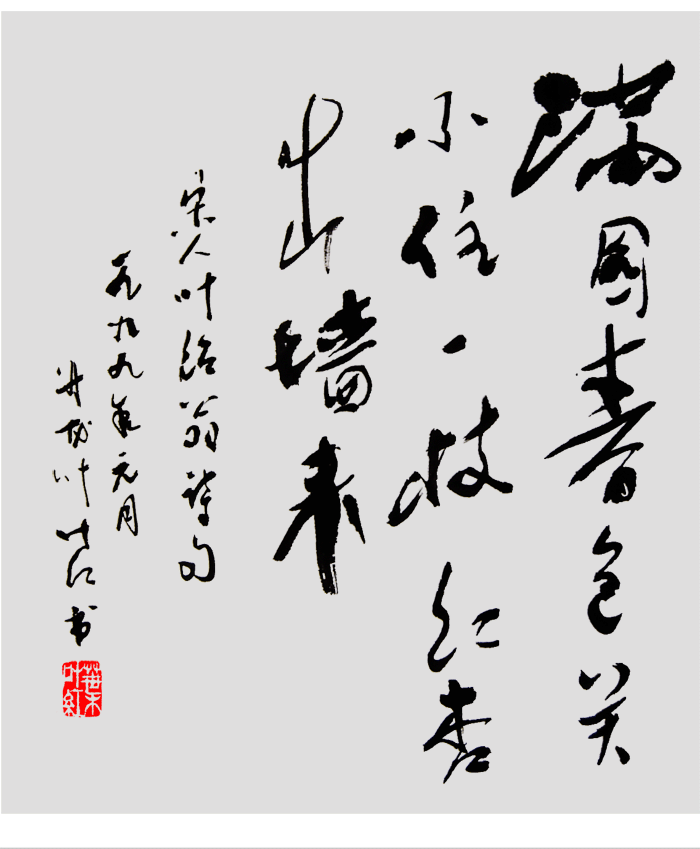 满园春色关
不住一枝红杏
出墙来
宋人叶绍翁诗句
一九九九年元月
叶叶红书